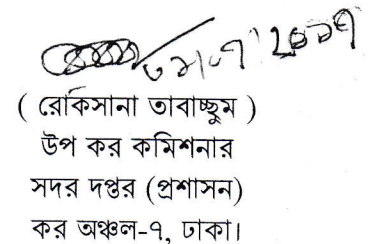 ( রোকিসানা তাবাচ্ছুম )
উপ কর কমিশনার
সদর দপ্তর (প্রশাসন)
কর অঞ্চল-৭, ঢাকা।